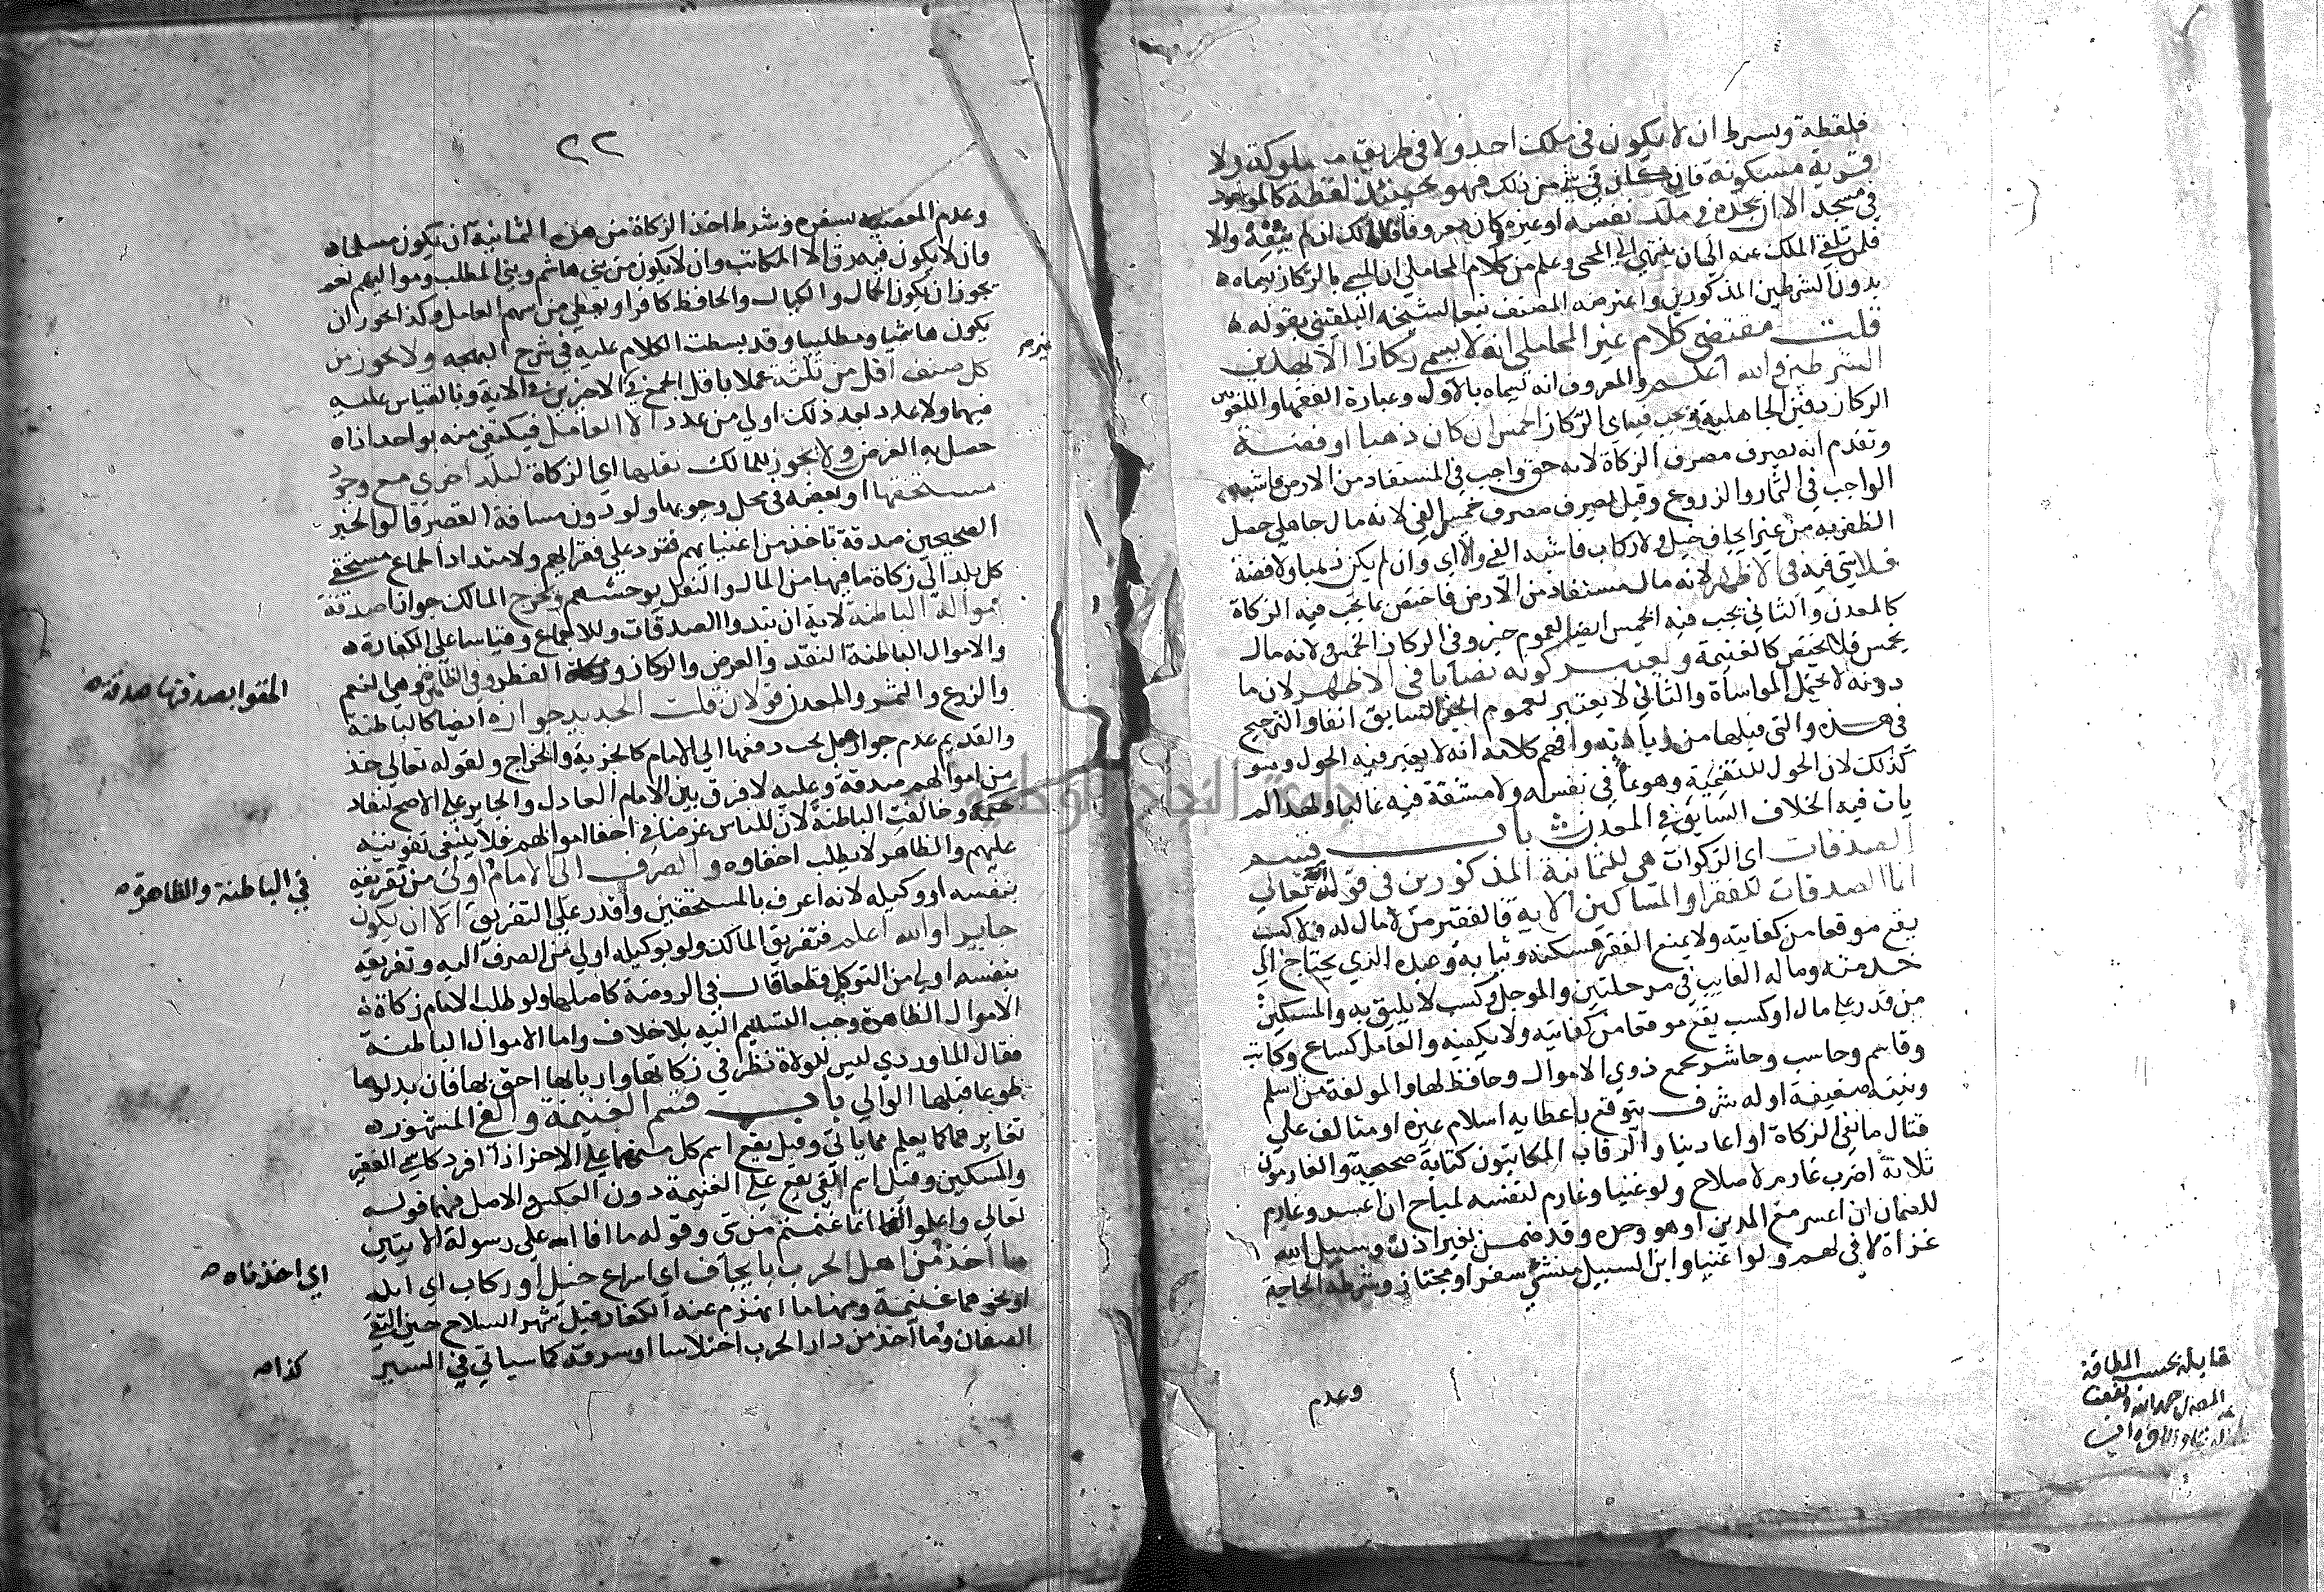 فلقطة وبسرط ان لا يكون في ملك احد ولا في طريق مسلوكة ولا
قرية مسكونة فان كان في شي من ذلك فهو حينئذ لقطة كالموجود
في مسجد الا ان يجده في ملك نفسه او غيره كان معروفا فللمالك ان لم ينفه والا
فلمن تلقي الملك عنه الي ان ينتهي الي المحيي وعلم من كلام المحاملي ان المسمي بالركاز يسماه
بدون الشرطين المذكورين واعترضه المصنف تبعا لشيخه البلقيني بقوله
قلت مقتضي كلام غير المحاملي انه لا يسمي ركازا الا بهذين
الشرطين والله اعلم والمعروف انه يسماه بالاول وعبارة الفقها واللغويين
الركاز دفين الجاهلية فيجب فيه اي الركاز الخمس ان كان ذهبا او فضة
وتقدم انه يصرف مصرف الزكاة لانه حق واجب في المستفاد من الارض فاشبه
الواجب في الثمار والزروع وقيل يصرف مصرف خمس الفي لانه مال جاهلي حصل
الظفر به من غير ايجاف خيل ولا ركاب فاشبه الفي والا اي وان لم يكن ذهبا ولا فضة
فلا شي فيه في الاظهر لانه مال مستفاد من الارض فاختص بما يجب فيه الزكاة
كالمعدن والثاني يجب فيه الخمس ايضا لعموم خبر وفي الركاز الخمس ولانه مال
يخمس فلا يختص كالغنيمة ويعتبر كونه نصابا في الاظهر لان ما
دونه لا يحتمل المواساة والثاني لا يعتبر لعموم الخبر السابق انفا والترجيح
في هذه والتي قبلها من زيادته وافهم كلامه انه لا يعتبر فيه الحول وهو
كذلك لان الحول للتنمية وهو نما في نفسه ولا مشقة فيه غالبا ولهذا لم
يات فيه الخلاف السابق في المعدن باب قسم
الصدقات اي الزكوات هي للثمانية المذكورين في قوله تعالي
انما الصدقات للفقرا والمساكين الاية فالفقير من لا مال له ولا كسب
يقع موقعا من كفايته ولا يمنع الفقر مسكنه وثيابه وعبده الذي يحتاج الي
خدمته وماله الغايب في مرحلتين والموجل وكسب لا يليق به والمسكين
من قدر علي مال او كسب يقع موقعا من كفايته ولا يكفيه والعامل كساع وكاتب
وقاسم وحاسب وحاشر يجمع ذوي الاموال وحافظ لها والمولفة من اسلم
ونيته ضعيفة او له شرف يتوقع باعطايه اسلام غيره او متالف علي
قتال مانعي الزكاة او اعادينا والرقاب المكاتبون كتابة صحيحة والغارمون
ثلاثة اضرب غارم لاصلاح ولو غنيا وغارم لنفسه لمباح ان اعسر وغارم
للضمان ان اعسر مع المدين او هو وحده وقد ضمن بغير اذن وسبيل الله
غزاة لا في لهم ولو اغنيا وابن السبيل منشئ سفر او مجتاز وشرطه الحاجة
وعدم
قابله بحسب الطاقة
٢٢
وعدم المعصية بسفره وشرط اخذ الزكاة من هذه الثمانية ان يكون مسلما
وان لا يكون فيه رق الا المكاتب وان لا يكون من بني هاشم وبني المطلب ومواليهم نعم
يجوز ان يكون الحمال والكيال والحافظ كافرا ويعطي من سهم العامل وكذا يجوز ان
يكون هاشميا ومطلبيا وقد بسطت الكلام عليه في شرح البهجه ولا يجوز من
كل صنف اقل من ثلثة عملا باقل الجمع في الاخرين في الاية وبالقياس عليه
فيهما ولا عدد بعد ذلك اولي من عدد الا العامل فيكتفي منه بواحد اذا
حصل به الغرض ولا يجوز للمالك نقلها اي الزكاة لبلد اخري مع وجود
مستحقها او بعضه في محل وجوبها ولو دون مسافة القصر قالوا لخبر
الصحيحين صدقة تاخذ من اغنيايهم فترد علي فقرايهم ولامتداد اطماع مستحقي
كل بلد الي زكاة ما فيها من المال والنقل يوحشهم ويخرج المالك جوازا صدقة
امواله الباطنة لاية ان تبدوا الصدقات وللاجماع وقياسا علي الكفارة
والاموال الباطنة النقد والعرض والركاز وزكاة الفطر وفي الظاهرة وهي النعم
والزرع والثمر والمعدن قولان قلت الجديد جوازه ايضا كالباطنة
والقديم عدم جوازه بل يجب دفعها الي الامام كالجزية والخراج ولقوله تعالي خذ
من اموالهم صدقة وعليه لا فرق بين الامام العادل والجاير علي الاصح لنفاد
حكمه وخالفت الباطنة لان للناس غرضا في اخفا اموالهم فلا ينبغي تفويته
عليهم والظاهر لا يطلب اخفاوه والصرف الي الامام اولي من تفريقه
بنفسه او وكيله لانه اعرف بالمستحقين واقدر علي التفريق الا ان يكون
جايرا والله اعلم فتفريق المالك ولو بوكيله اولي من الصرف اليه وتفريقه
بنفسه اولي من التوكل قطعا قال في الروضة كاصلها ولو طلب الامام زكاة
الاموال الظاهرة وجب التسليم اليه بلا خلاف واما الاموال الباطنة
فقال الماوردي ليس للولاة نظر في زكاتها واربابها احق بها فان بدلوها
طوعا قبلها الوالي باب قسم الغنيمة والفي المشهور
تغايرهما كما يعلم مما ياتي وقيل يقع اسم كل منهما علي الاخر اذا افرد كاسمي الفقير
والمسكين وقيل اسم الفي يقع علي الغنيمة دون العكس والاصل فيهما قوله
تعالي واعلموا انما غنمتم من شي وقوله ما افا الله علي رسوله الايتين
ما اخذ من اهل الحرب بايجاف اي اسراع خيل او ركاب اي ابل
او نحوهما غنيمة ومنها ما انهزم عنه الكفار قبل شهر السلاح حين التقي
الصفان وما اخذ من دار الحرب اختلاسا او سرقة كما سياتي في السير
في الباطنة والظاهرة
اي اخذناه
كذا